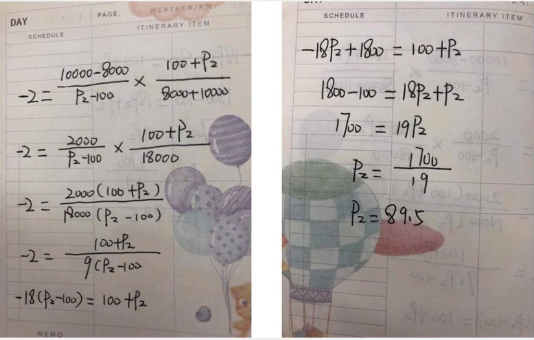 DAY
PAGE:
WEATHER
SCHEDULE
ITINERARY ITEM
-2 = (10000-8000)/(P₂-100) × (100+P₂)/(8000+10000)
-2 = 2000/(P₂-100) × (100+P₂)/18000
-2 = 2000(100+P₂)/18000(P₂-100)
-2 = (100+P₂)/9(P₂-100
-18(P₂-100) = 100+P₂
MEMO
SCHEDULE
ITINERARY ITEM
-18P₂+1800 = 100+P₂
1800-100 = 18P₂+P₂
1700 = 19P₂
P₂ = 1700/19
P₂ = 89.5